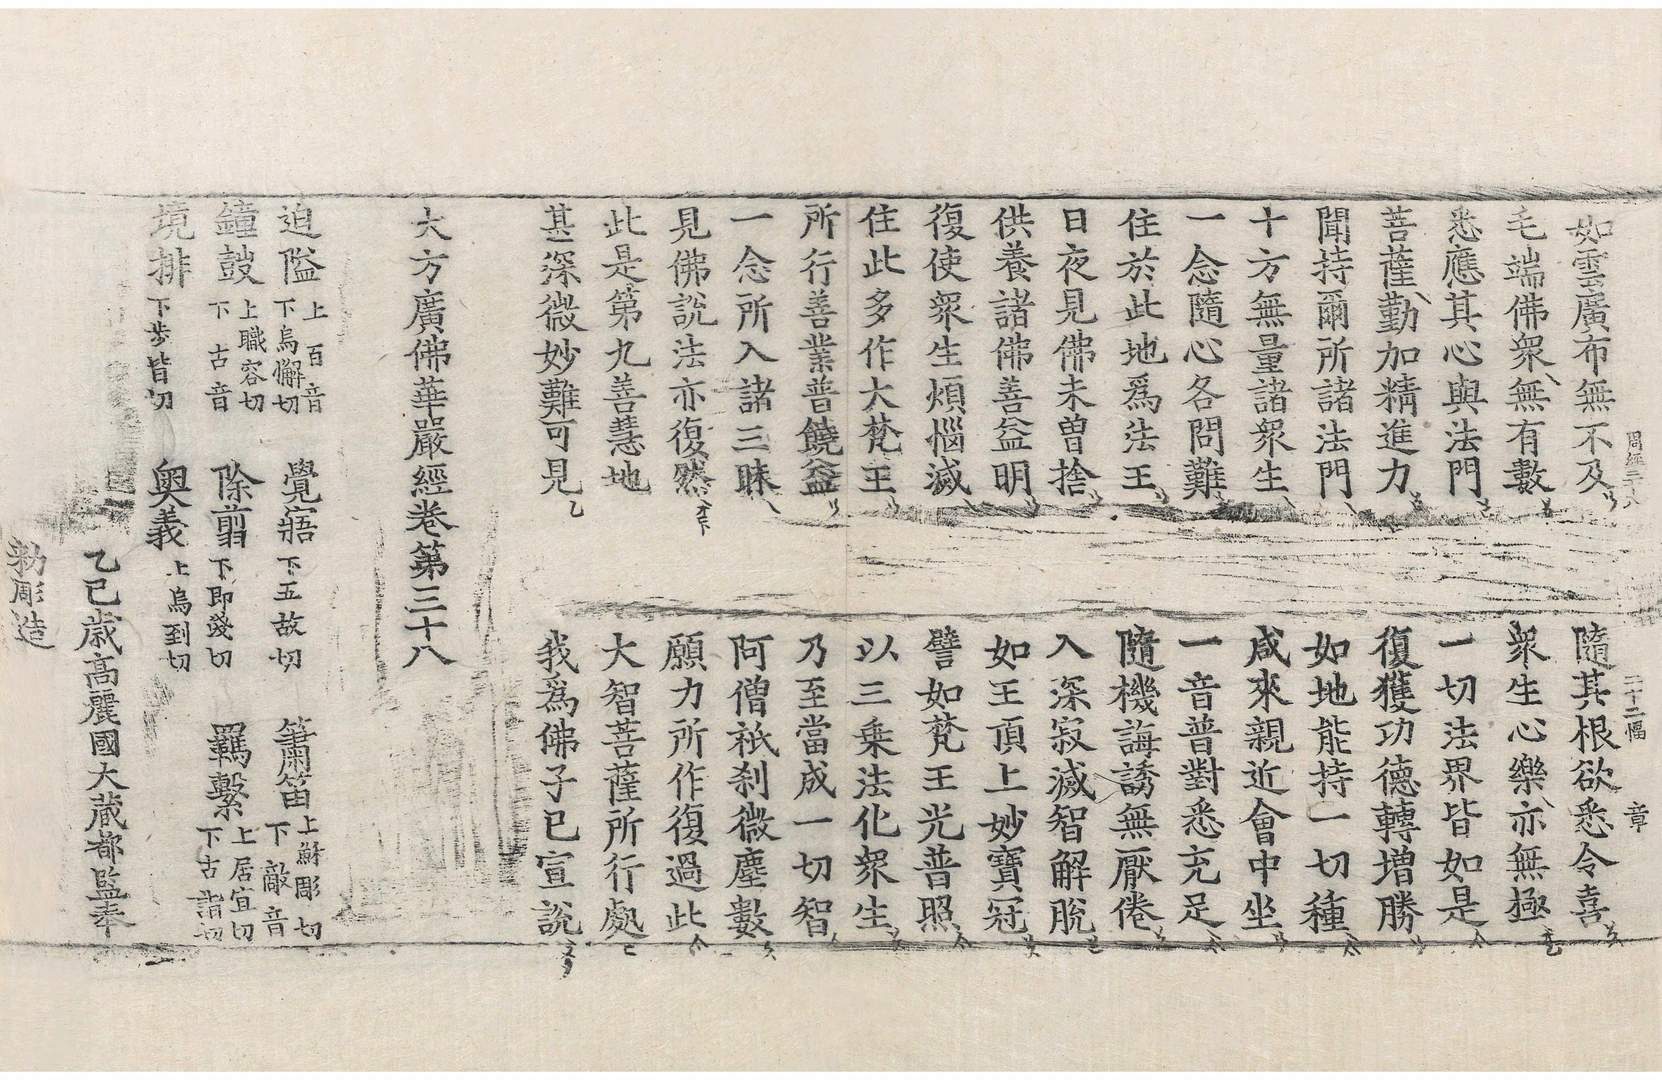 周經三十八　二十二幅　章
如雲廣布無不及　隨其根欲悉令喜
毛端佛衆無有數　衆生心樂亦無極
悉應其心與法門　一切法界皆如是
菩薩勤加精進力　復獲功德轉增勝
聞持爾所諸法門　如地能持一切種
十方無量諸衆生　咸來親近會中坐
一念隨心各問難　一音普對悉充足
住於此地爲法王　隨機誨誘無厭倦
日夜見佛未曽捨　入深寂滅智解脫
供養諸佛善益明　如王頂上妙寶冠
復使衆生煩惱滅　譬如梵王光普照
住此多作大梵王　以三乗法化衆生
所行善業普饒益　乃至當成一切智
一念所入諸三昧　阿僧祇刹微塵數
見佛說法亦復然　願力所作復過此
此是第九善慧地　大智菩薩所行處
甚深微妙難可見　我爲佛子已宣說
大方廣佛華嚴經卷第三十八
迫隘上百音下烏懈切　覺寤下五故切　簫笛上蘇彫切下敵音
鐘鼓上職容切下古音　除翦下即淺切　羈繫上居宜切下古詣切
境排下步皆切　奧義上烏到切
乙巳歳高麗國大藏都監奉
勑彫造